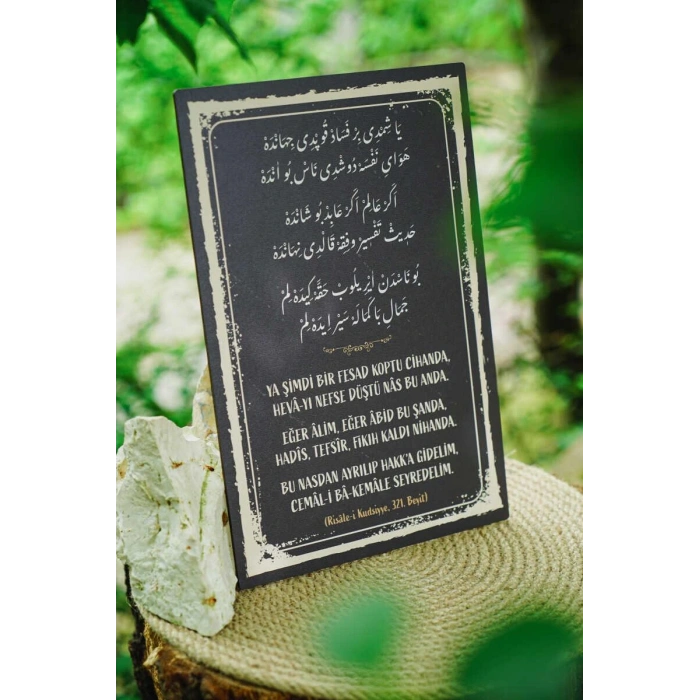 يَا شِمْدِى بِرْ فَسَادْ قُوپْدِى جِهَانْدَهْ
هَوَاىِ نَفْسَهْ دُوشْدِى نَاسْ بُو اٰنْدَهْ
اَكَرْ عَالِمْ اَكَرْ عَابِدْ بُو شَانْدَهْ
حَدِيثْ تَفْسِيرْ وَفِقِهْ قَالْدِى نِهَانْدَهْ
بُو نَاسْدَنْ اَيْرِيلُوبْ حَقَّهْ كِيدَهْ لِمْ
جَمَالِ بَا كَمَالَهْ سَيْرْ اِيدَهْ لِمْ
YA ŞİMDİ BİR FESAD KOPTU CİHANDA,
HEVÂ-YI NEFSE DÜŞTÜ NÂS BU ANDA.
EĞER ÂLİM, EĞER ÂBİD BU ŞANDA,
HADÎS, TEFSÎR, FIKIH KALDI NİHANDA.
BU NASDAN AYRILIP HAKK'A GİDELİM,
CEMÂL-İ BÂ-KEMÂLE SEYREDELİM.
(Risâle-i Kudsiyye, 321. Beyit)